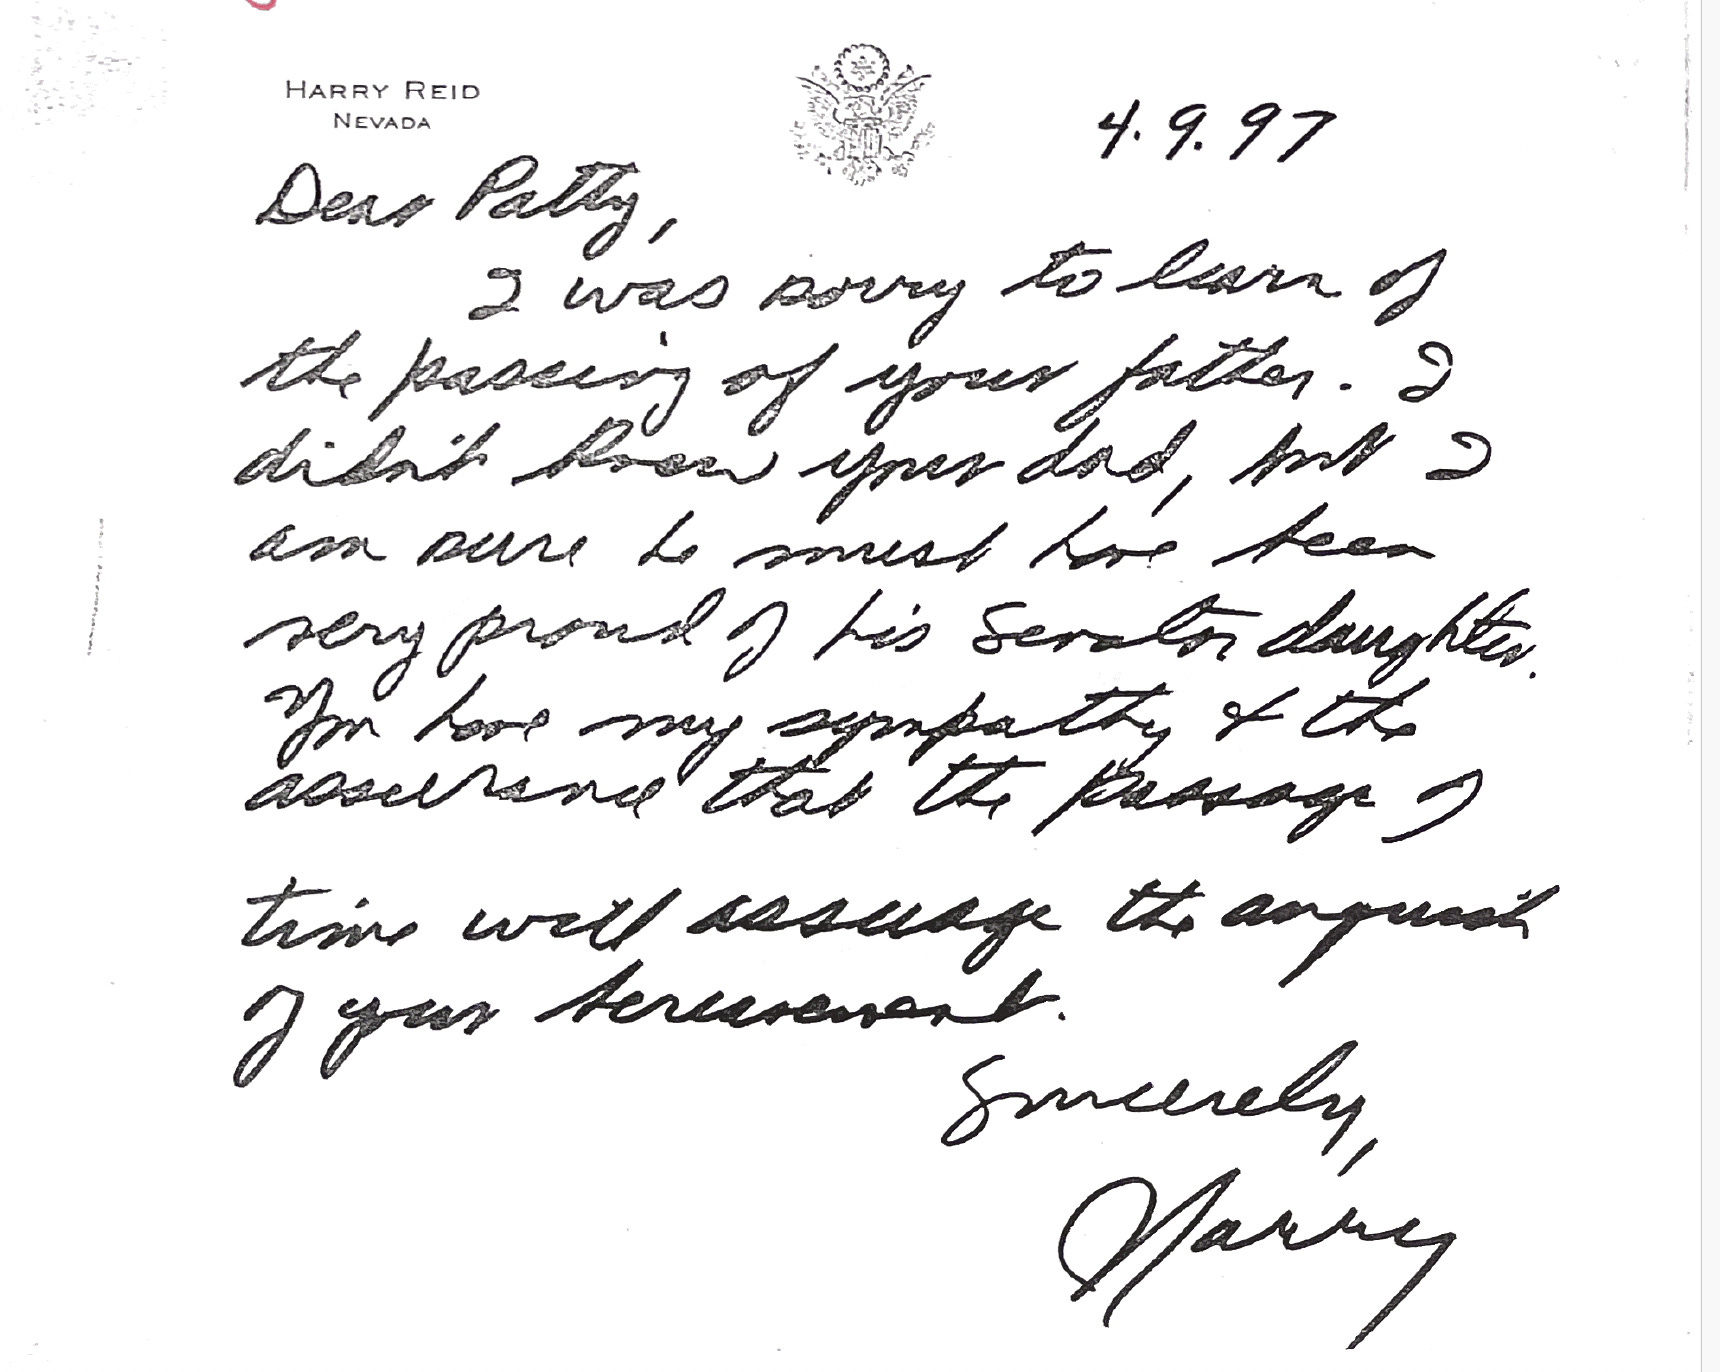 HARRY REID
NEVADA
4.9.97
Dear Patty,
I was sorry to learn of
the passing of your father. I
didn't know your dad, but I
am sure he must have been
very proud of his Senator daughter.
You have my sympathy & the
assurance that the passage of
time will assuage the anguish
of your bereavement.
Sincerely,
Harry